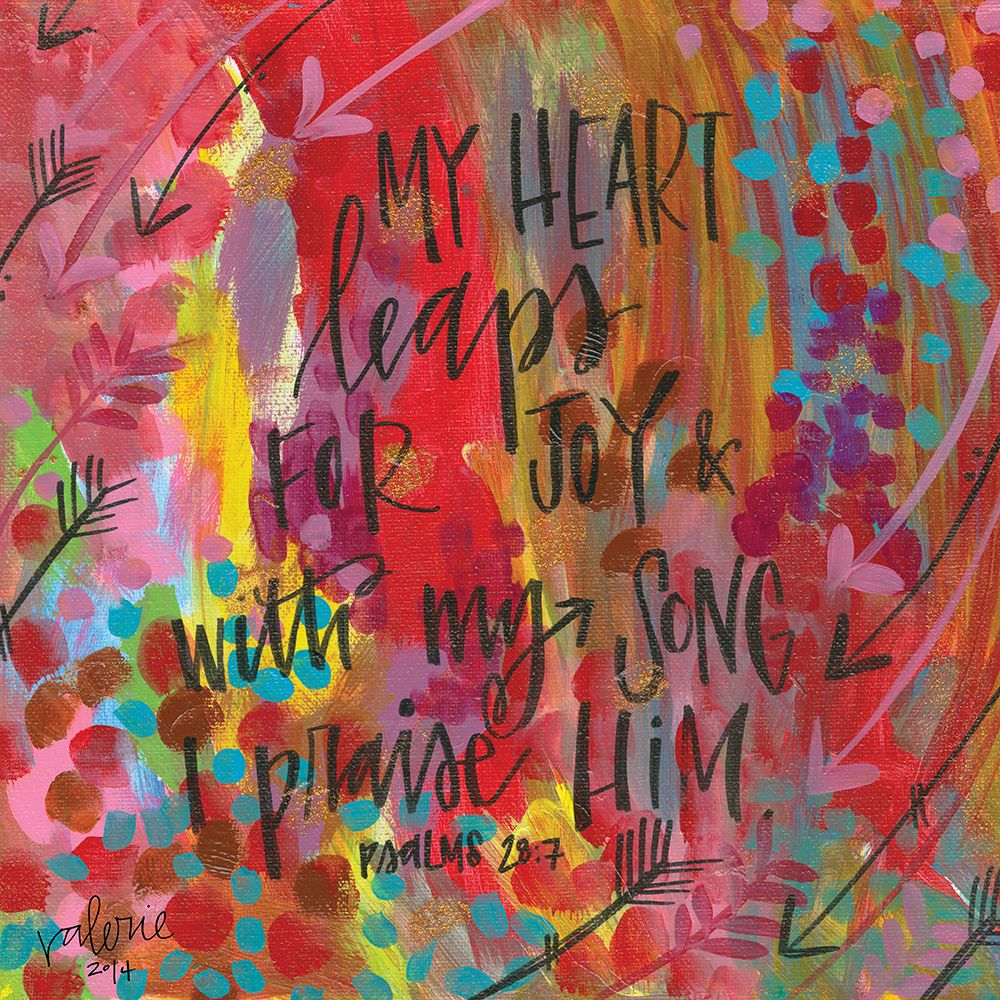 MY HEART
leaps
FOR JOY &
with my SONG
I praise HiM
PSALMS 28:7
valerie
2014